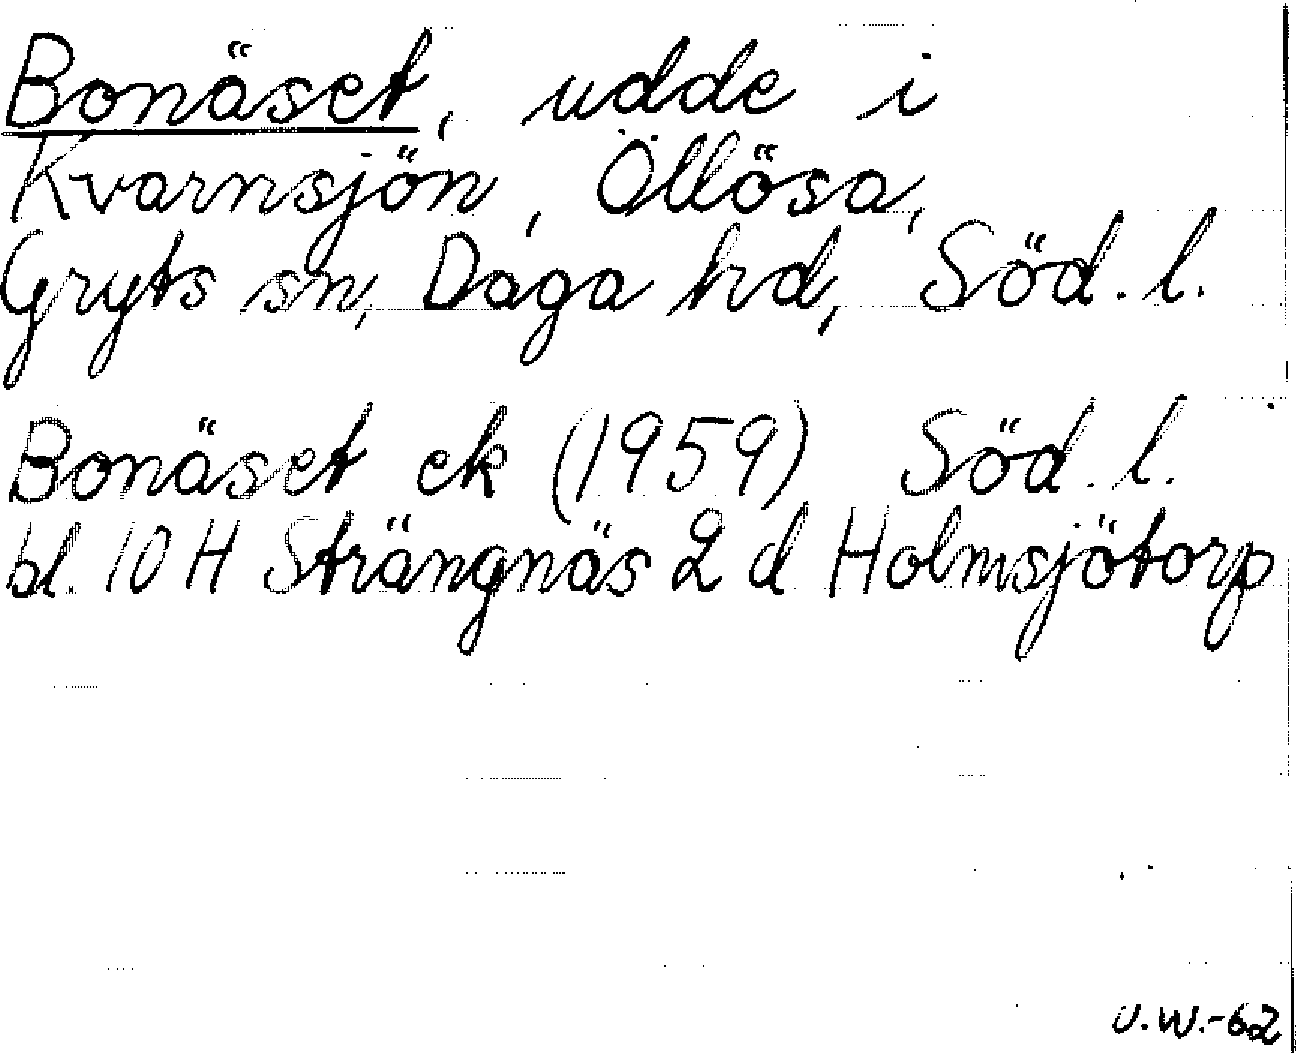 Bonäset, udde i
Kvarnsjön, Öllösa,
Gryts sn, Daga hd, Söd. l.
Bonäset ek (1959) Söd. l.
bl. 10 H Strängnäs 2 d Holmsjötorp
U.W.-62